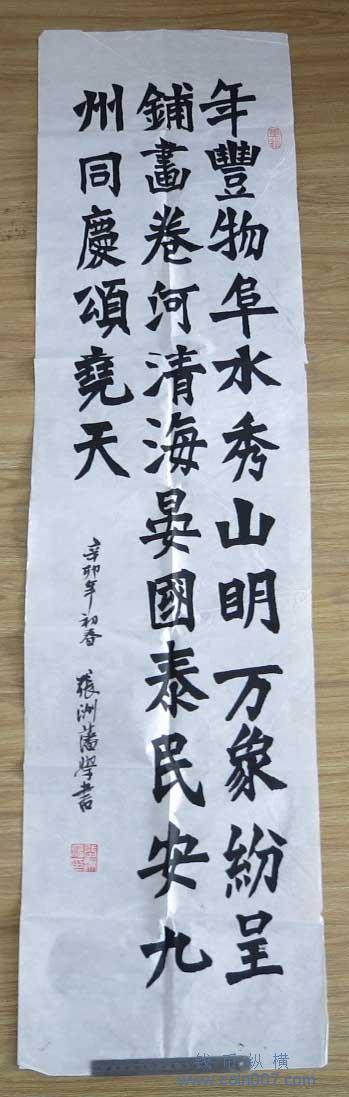 年豐物阜水秀山明万象紛呈
鋪畫卷河清海晏國泰民安九
州同慶頌堯天
辛卯年初春 張洲藩學書
钱币纵横
www.coin007.com